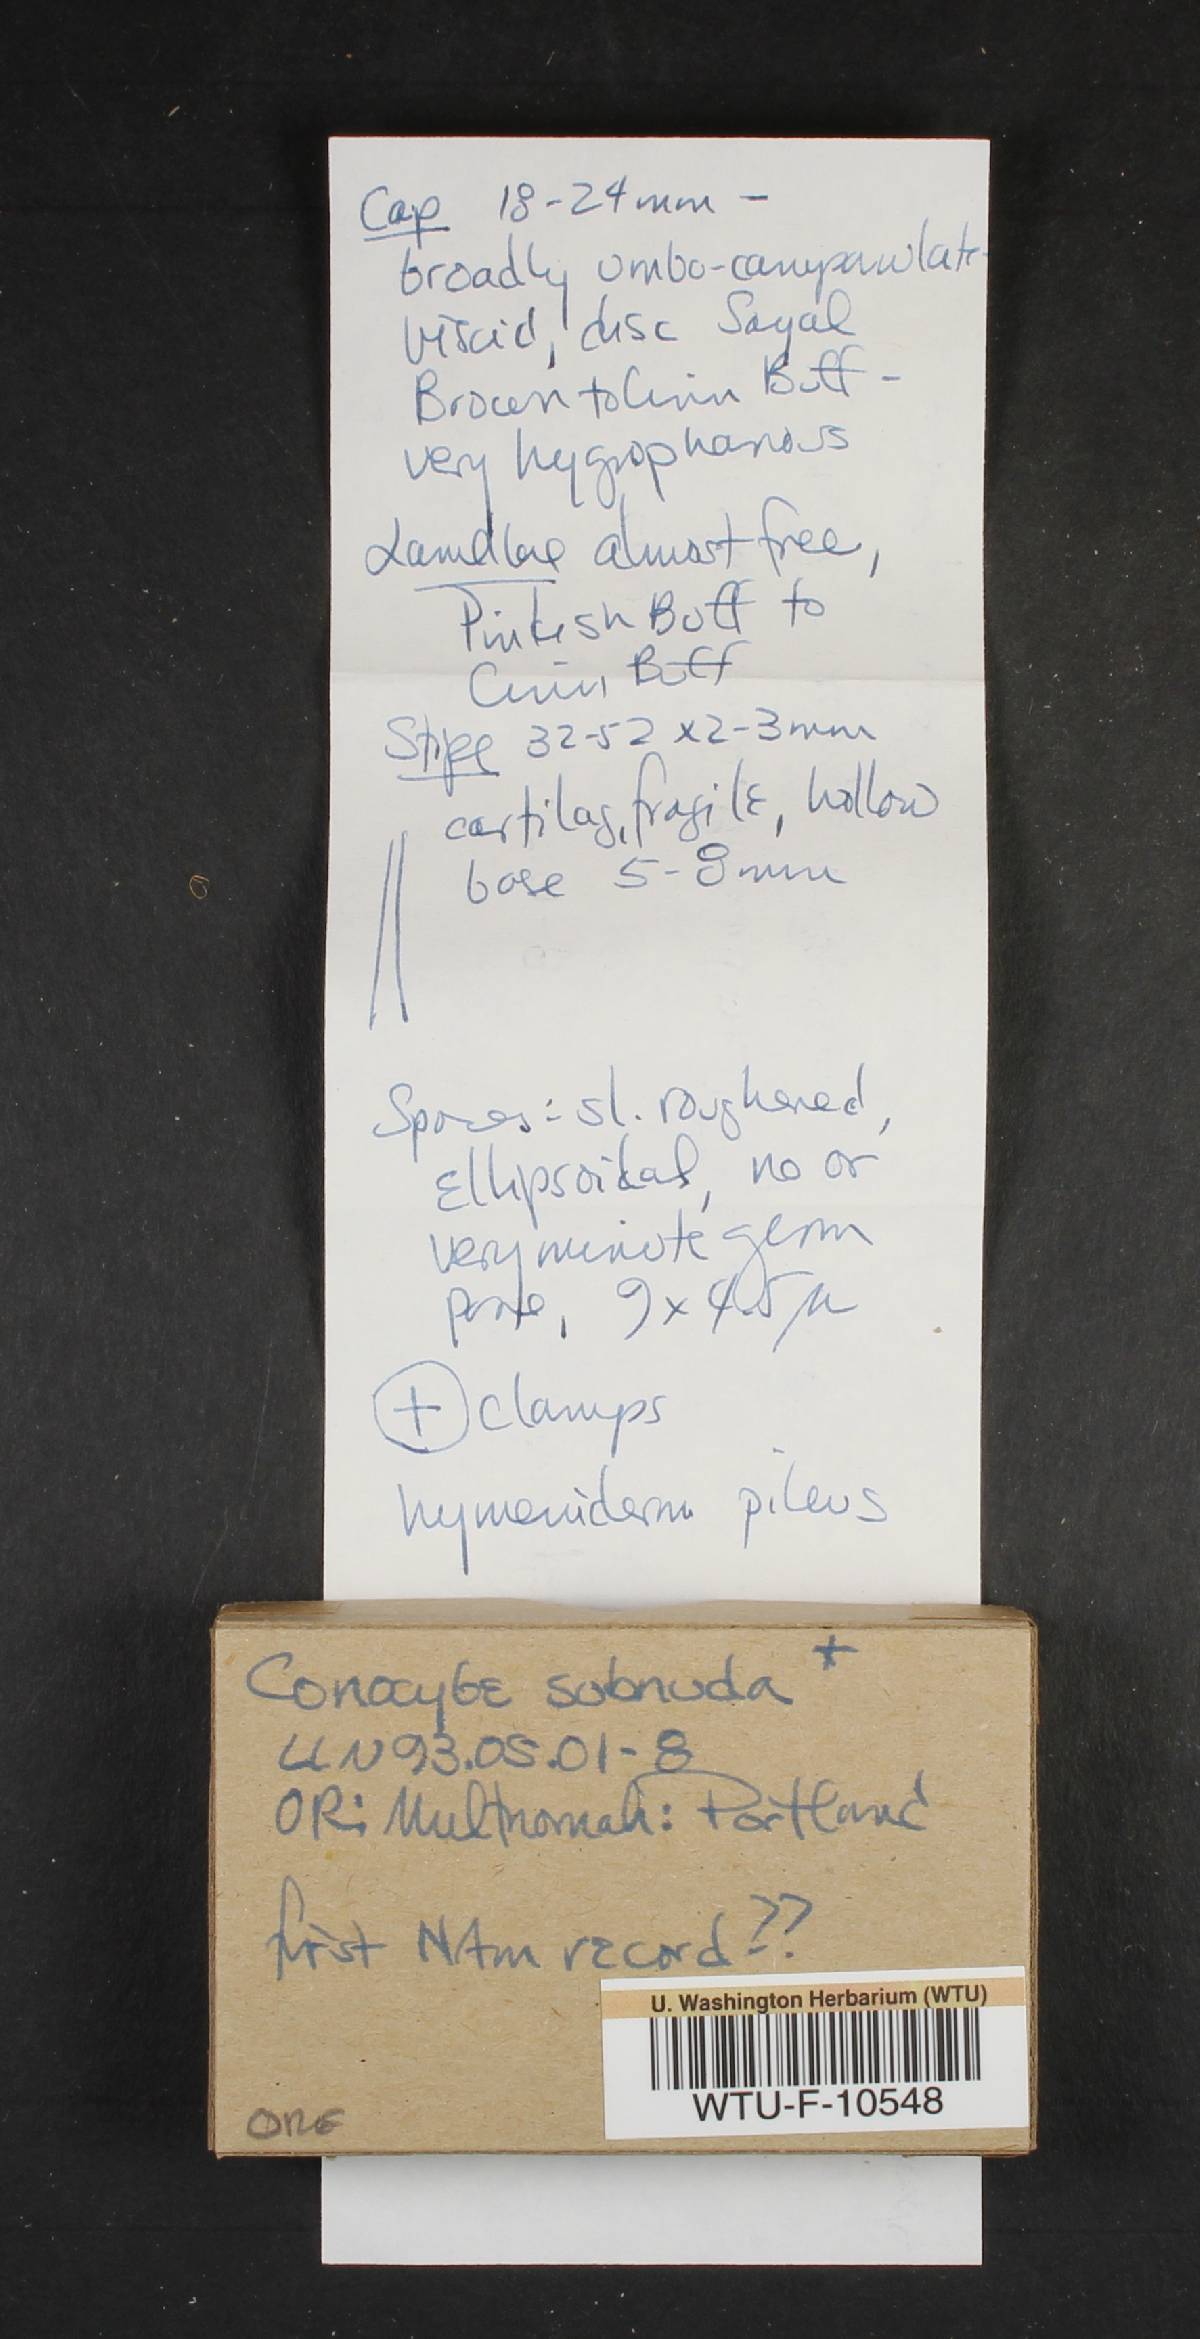 Cap 18-24mm -
broadly umbo-campanulate-
viscid, disc Sayal
Brown to Cinn Buff -
very hygrophanous
Lamellae almost free,
Pinkish Buff to
Cinn Buff
Stipe 32-52 x 2-3mm
cartilag, fragile, hollow
base 5-8mm
Spores: sl. roughened,
ellipsoidal, no or
very minute germ
pore, 9 x 4.5 µ
+ clamps
hymeniderm pileus
Conocybe subnuda *
LLN 93.05.01-8
OR: Multnomah: Portland
first NAm record??
U. Washington Herbarium (WTU)
WTU-F-10548
ORE